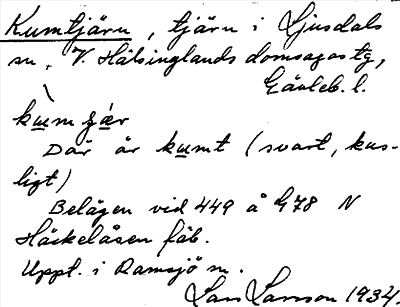 Kumtjärn, tjärn i Ljusdals
sn, V. Hälsinglands domsagas tg,
Gävleb. l.
kumʒær
Där är kumt (svart, kus-
ligt)
Belägen vid 449 å G78 N
Häckelåsen fäb.
Uppt. i Ramsjö sn.
Lars Larsson 1934.